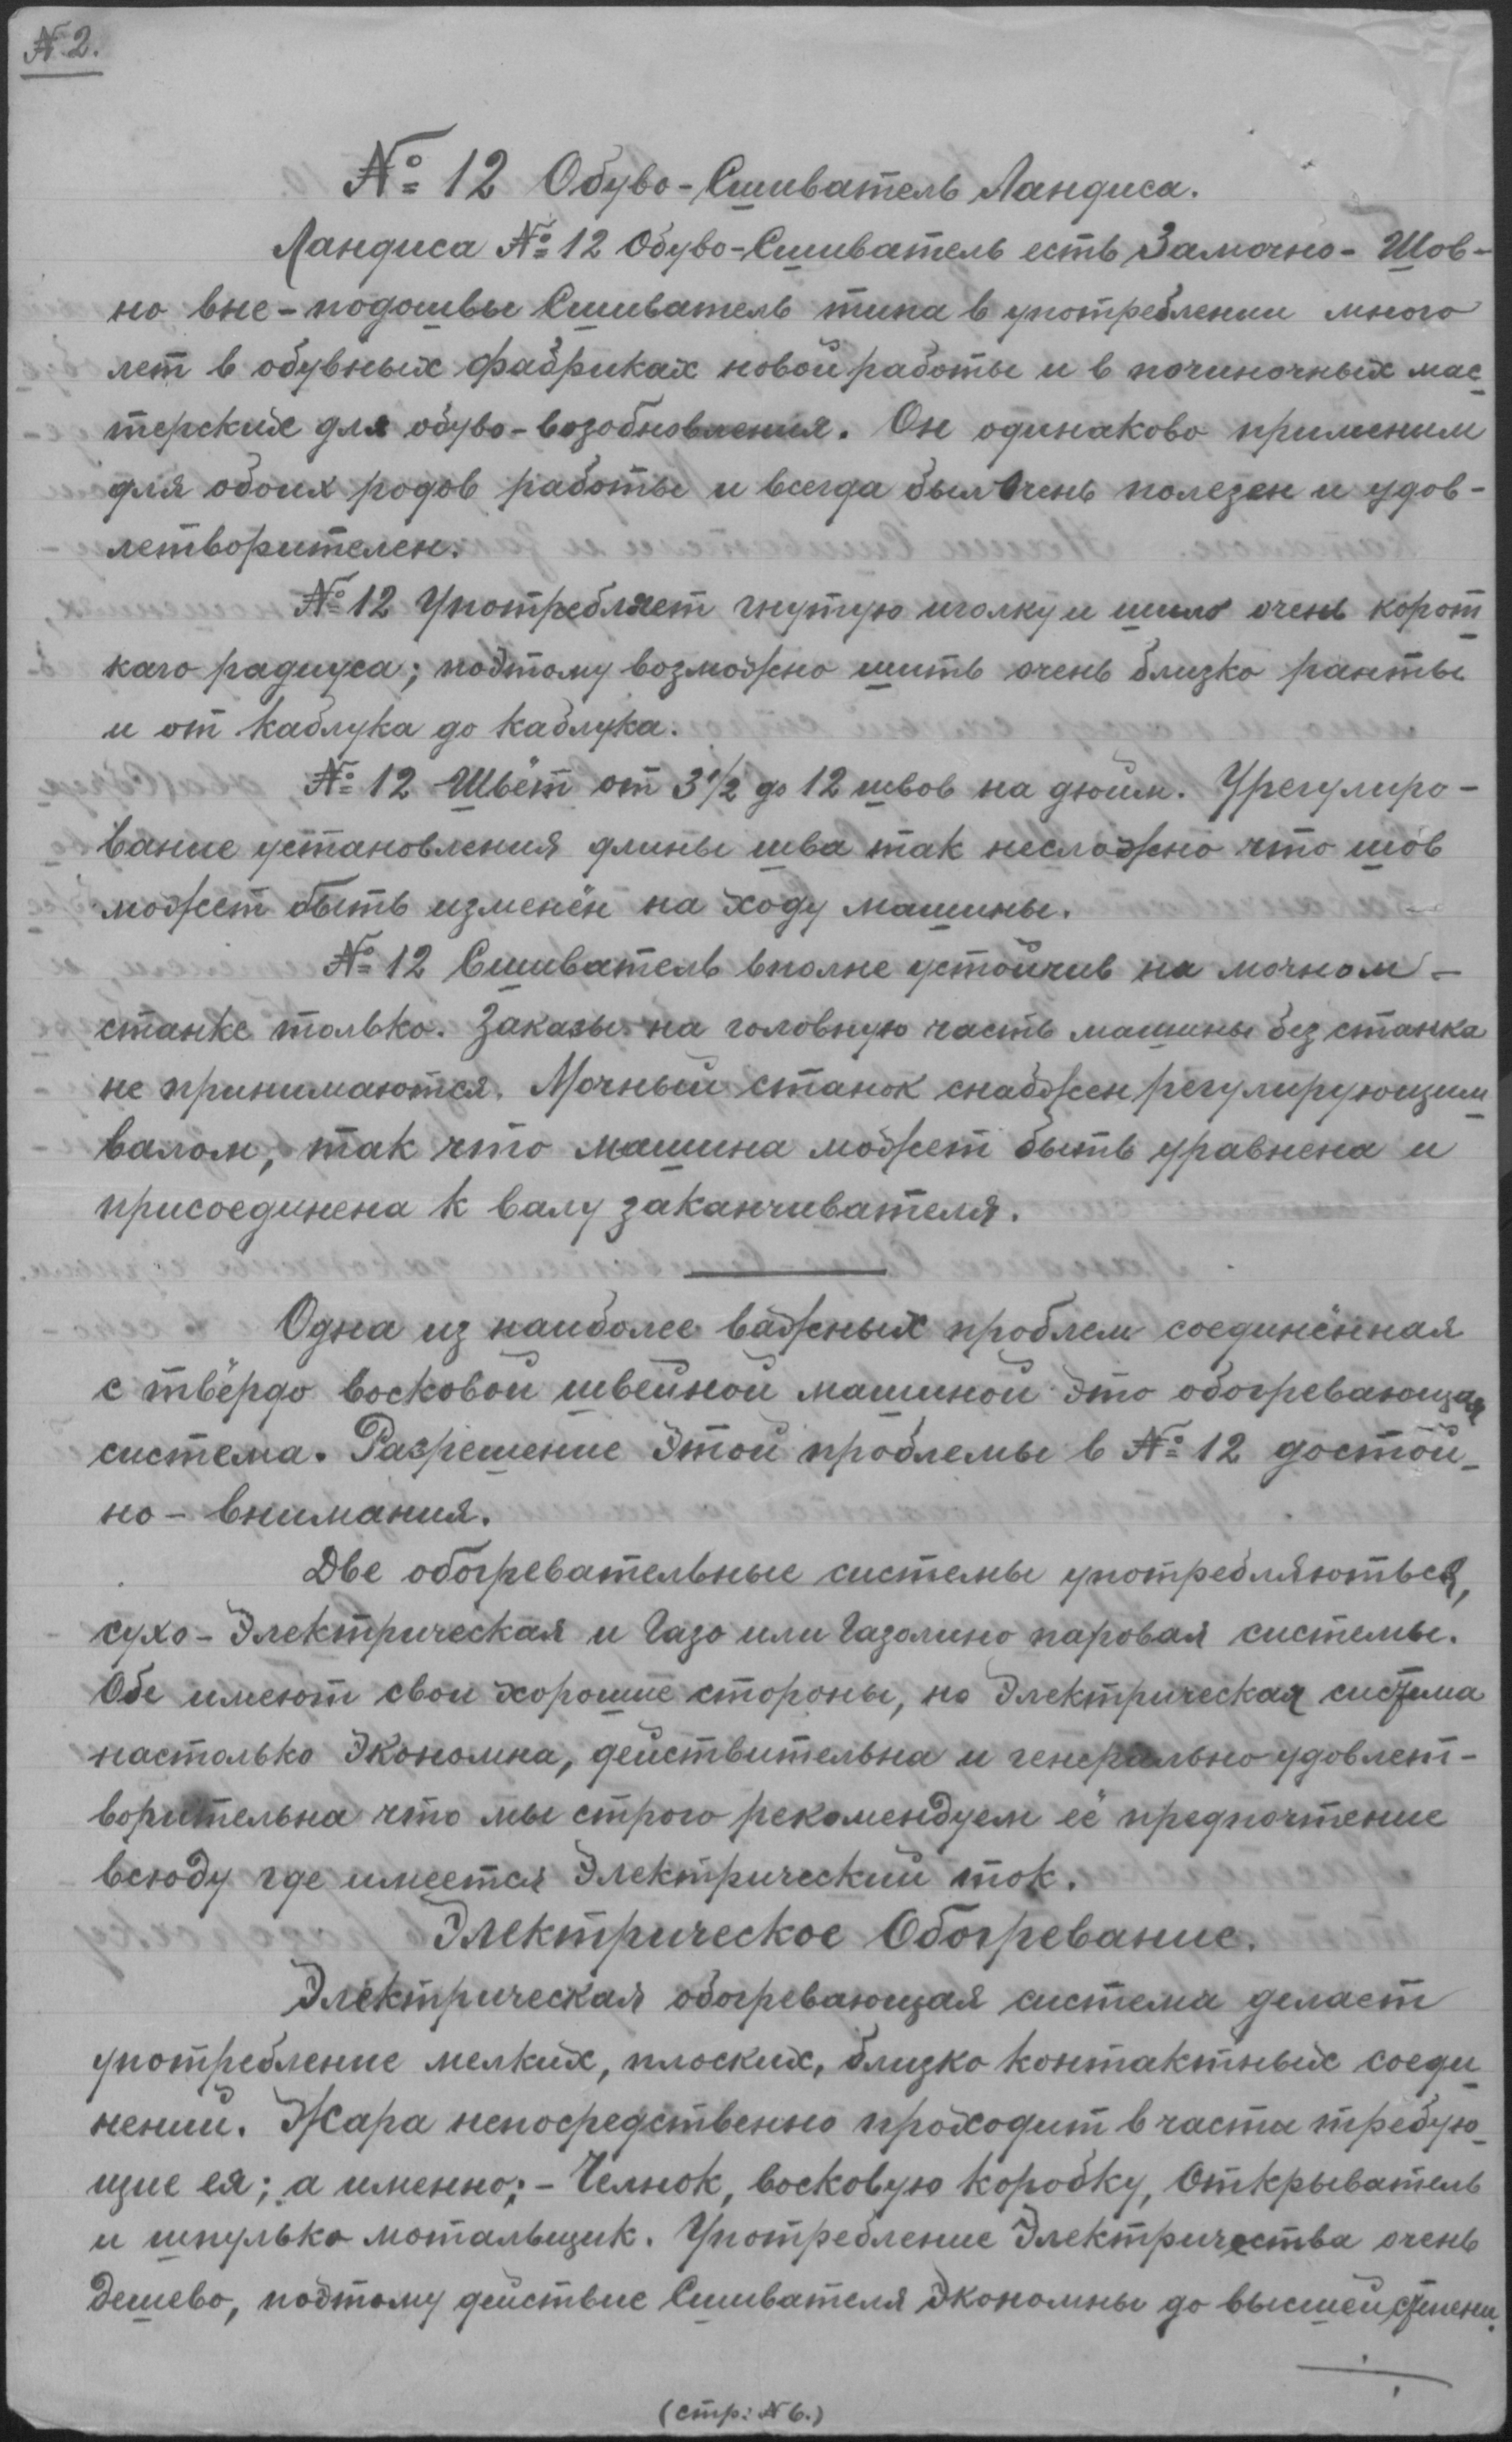 № 2.
№ 12 Обуво-Сшиватель Ландиса.
Ландиса № 12 Обуво-Сшиватель есть Замочно-Шов-
но вне-подошвы Сшиватель типа в употреблении много
лет в обувных фабриках новой работы и в починочных мас-
терских для обуво-возобновления. Он одинаково применим
для обоих родов работы и всегда был очень полезен и удов-
летворителен.
№ 12 Употребляет гнутую иголку и шило очень корот-
каго радиуса; поэтому возможно шить очень близко ранты
и от каблука до каблука.
№ 12 Шьёт от 3½ до 12 швов на дюйм. Урегулиро-
вание установления длины шва так несложно что шов
может быть изменён на ходу машины.
№ 12 Сшиватель вполне устойчив на мочном-
станке только. Заказы на головную часть машины без станка
не принимаются. Мочный станок снабжен регулирующим
валом, так что машина может быть уравнена и
присоединена к валу заканчивателя.
Одна из наиболее важных проблем соединённая
с твёрдо восковой швейной машиной это обогревающая
система. Разрешение этой проблемы в № 12 достой-
но-внимания.
Две обогревательные системы употребляються,
сухо-Электрическая и Газо или Газолино паровая системы.
Обе имеют свои хорошие стороны, но Электрическая система
настолько Экономна, действительна и генерально удовлет-
ворительна что мы строго рекомендуем её предпочтение
всюду где имеется Электрический ток.
Электрическое Обогревание.
Электрическая обогревающая система делает
употребление мелких, плоских, близко контактных соеди-
нений. Жара непосредственно проходит в части требую-
щие ея; а именно:- Челнок, восковую коробку, Открыватель
и шпулько мотальщик. Употребление Электричества очень
Дешево, поэтому действие Сшивателя Экономны до высшей степени.
(стр: № 6.)